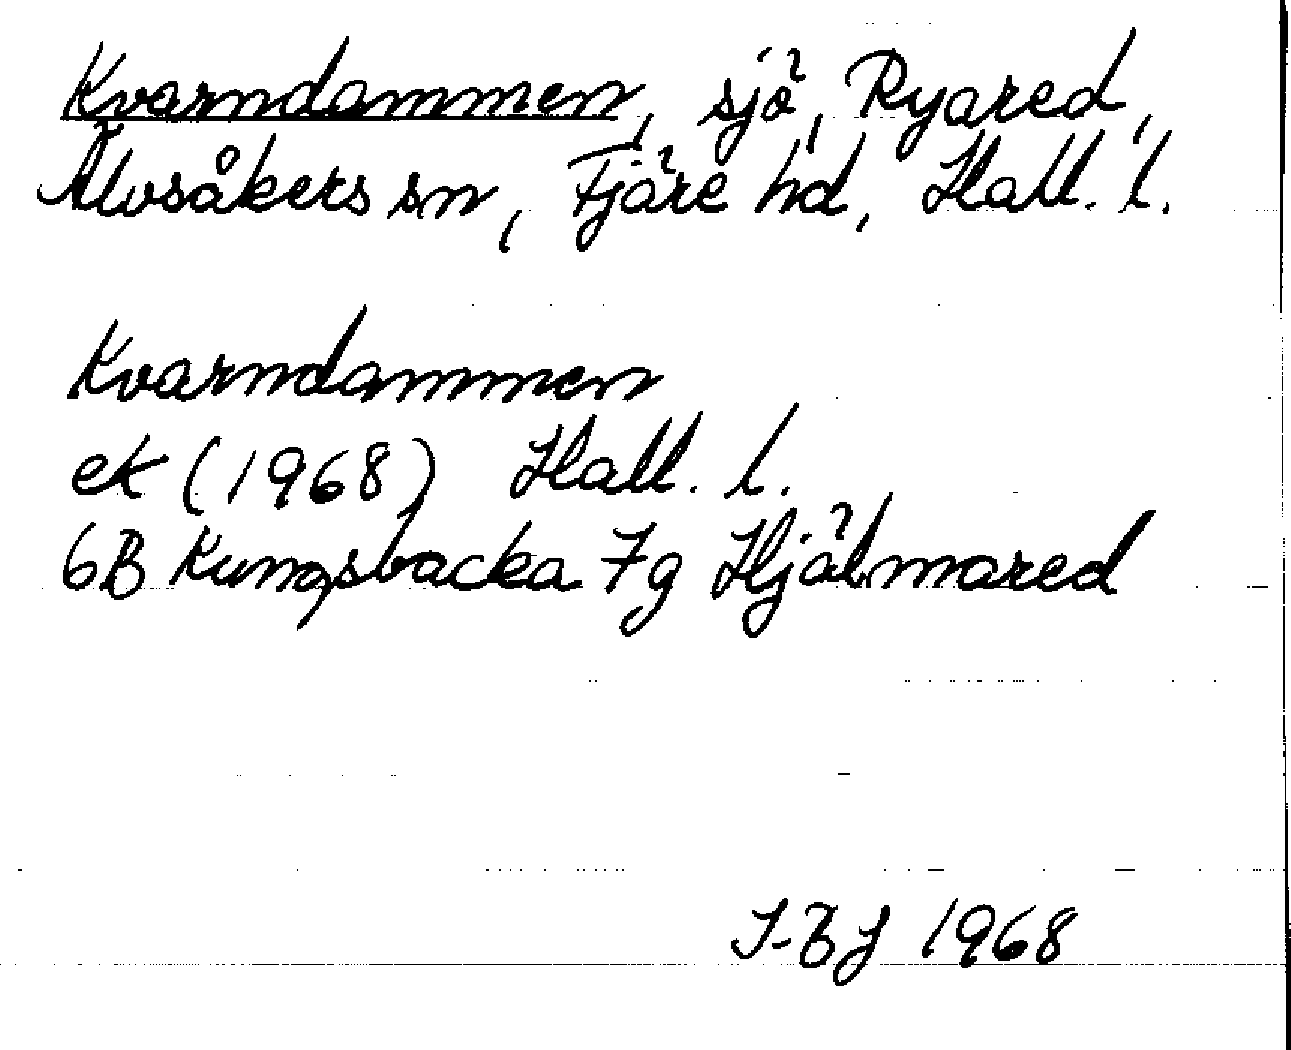 Kvarndammen, sjö, Ryared,
Älvsåkers sn, Fjäre hd, Hall. l.
Kvarndammen
ek (1968) Hall. l.
6B Kungsbacka 7g Hjälmared
I-BJ 1968